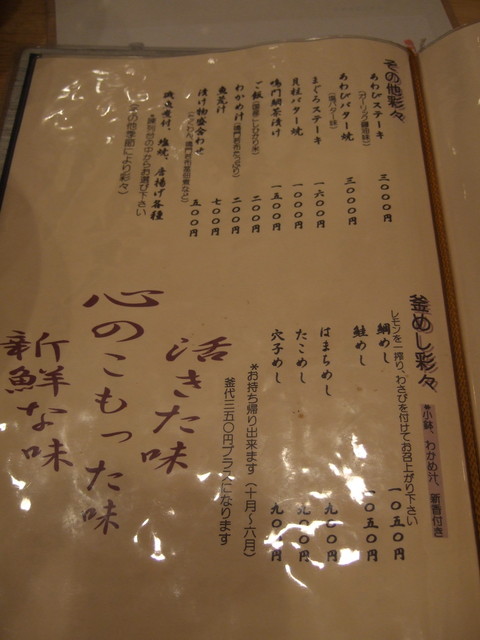 その他彩々
あわびステーキ 三〇〇〇円
(ガーリック醤油味)
あわびバター焼 三〇〇〇円
(塩バター味)
まぐろステーキ 一六〇〇円
貝柱バター焼 一〇〇〇円
鳴門鯛茶漬け 一五〇〇円
ご飯 二〇〇円
わかめ汁 二〇〇円
魚荒汁 七〇〇円
漬け物盛合わせ 五〇〇円
磯魚煮付、塩焼、唐揚げ各種
の中からお選び下さい
(その他季節により彩々)
釜めし彩々
*小鉢、わかめ汁、新香付き
レモンを一搾り、わさびを付けてお召上がり下さい
鯛めし 一〇五〇円
鮭めし 一〇五〇円
はまちめし 九〇〇円
たこめし 九〇〇円
穴子めし 九〇〇円
*お持ち帰り出来ます(十月～六月)
釜代三五〇円プラスになります
活きた味
心のこもった味
新鮮な味